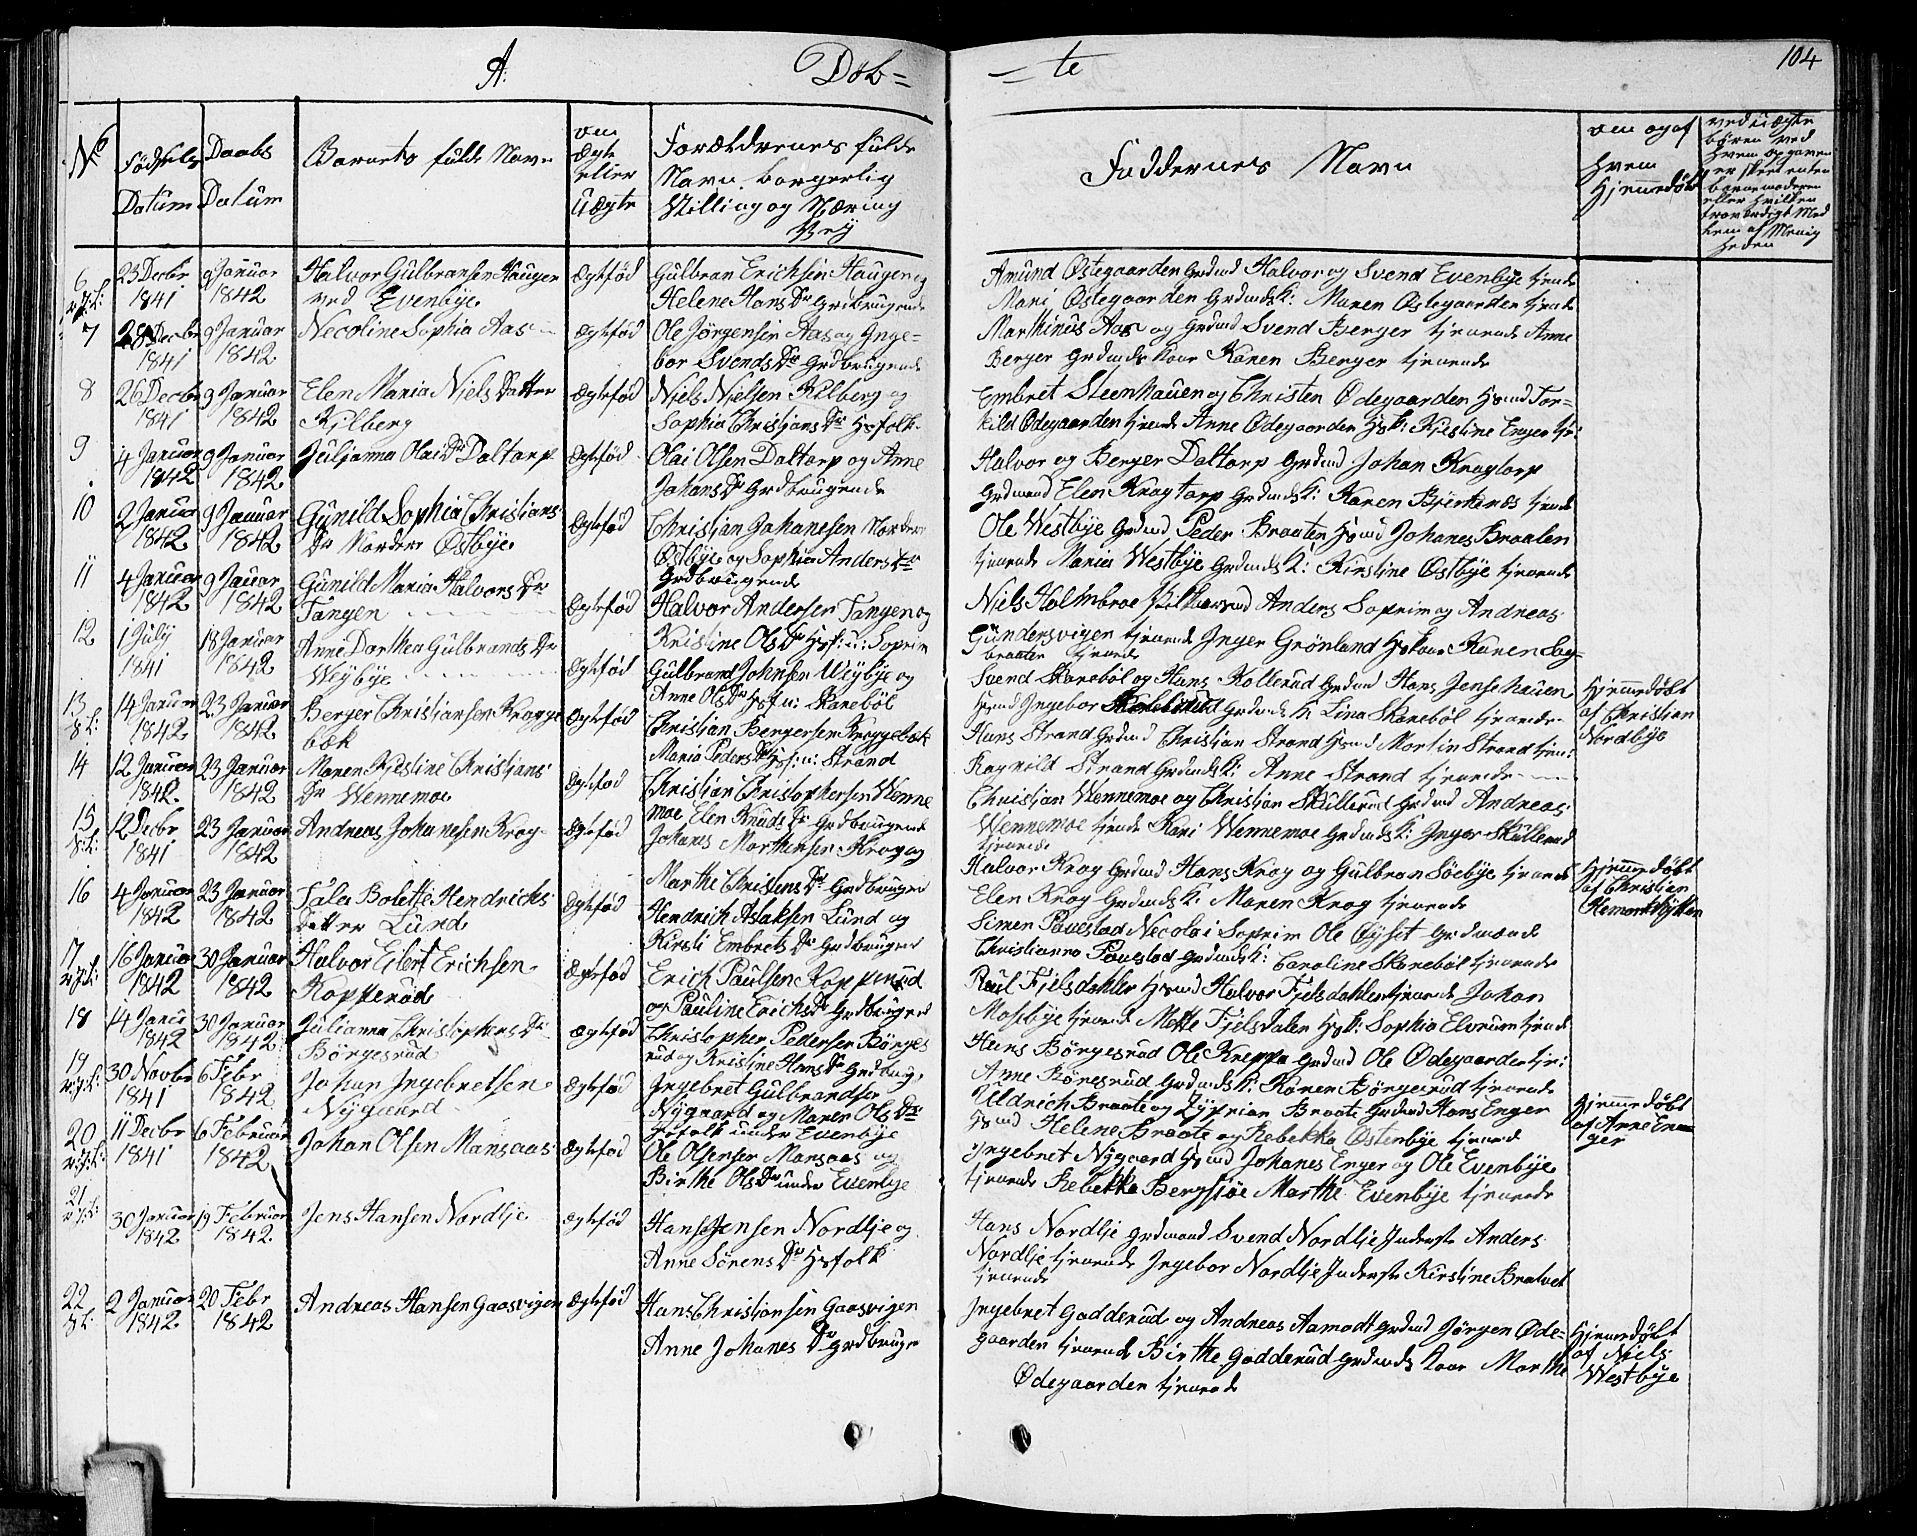 A. Døb= =te 104
No Fødsels Datum Daabs Datum Barnets fulde Navn om Ægte eller Uægte Forældrenes fulde Navn, borgerlig Stilling og Næring Vej
Faddernes Navn om og af hvem Hjemmedøbt ved uægte børn ved hvem opgaven er skeet enten barnemoderen eller hvilken troværdigt Medlem af Menigheden
6 23 Decbr 1841 9 Januar 1842 Halvor Gulbransen Haugen ved Evenbye Ægtefød Gulbran Erichsen Haugen og
Helene Hans Dr Grdbrugende
Amund Østegaarden Grdmd Halvor og Svend Evenbye tjende
Mari Østegaarden Grdmdsk: Maren Østegaarden tjende
7 28 Decbr 1841 9 Januar 1842 Necoline Sophia Aas Ægtefød Ole Jørgensen Aas og Inge=
bor Svends Dr Grdbrugende
Marthinus Aas og Grdmd Svend Berger tjenende Anne
Berger Grdmds Kaar Karen Berger tjenende
8 26 Decbr 1841 9 Januar 1842 Elen Maria Niels Datter
Kilberg Ægtefød Niels Nielsen Kilberg og
Sophia Christians Dr Hsfolk
Embret Steenhauen og Christen Ødegaarden Hsmd Tor=
kild Ødegaarden tjende Anne Ødegaarden Hsk: Kjestine Enger tje:
9 4 Januar 1842 9 Januar 1842 Julianna Olai Dr Daltorp Ægtefød Olai Olsen Daltorp og Anne
Johans Dr Grdbrugende
Halvor og Berger Daltorp Grdmd Johan Kragtorp
Grdmand Elen Kragtorp Grdmdsk: Karen Bjerkenæs tjende
10 2 Januar 1842 9 Januar 1842 Gunild Sophia Christians
Dr Nordere Østbye Ægtefød Christian Johanesen Nordere
Østbye og Sophia Anders Dr
Grdbrugende
Ole Westbye Grdmd Peder Braaten Hsmd Johanes Braaten
tjenende Maria Westbye Grdmdsk: Kirstine Østbye tjenende
11 4 Januar 1842 9 Januar 1842 Gunild Maria Halvors Dr
Tangen Ægtefød Halvor Andersen Tangen og
Kristine Ols Dr Hsf: u: Soprim
Niels Holmbroe Anders Soprim og Andreas
Gundersvigen tjenende Inger Grønland Hskone Karen Sag=
braaten tjende
12 1 July 1841 18 Januar 1842 Anne Dorthea Gulbrands Dr
Weybye Ægtefød Gulbrand Johnsen Weybye og
Anne Ols Dr Hsf u: Skarebøl
Svend Skarebøl og Hans Kollerud Grdmd Hans Jensehauen
Hsmd Ingebor Grdmdsk Lina Skarebøl tjenende
Hjemmedøbt af Christian Nordbye
13 14 Januar 1842 23 Januar 1842 Berger Christiansen Kragge
bæk Ægtefød Christian Bergersen Kraggebæk
Maria Peders Dr Hsf: u: Strand
Hans Strand Grdmd Christian Strand Hsmd Martin Strand tjen:
Ragnild Strand Grdmdsk: Anne Strand tjenende
14 12 Januar 1842 23 Januar 1842 Maren Kjestine Christians
Dr Wennemoe Ægtefød Christian Christophersen Wenne
moe Elen Knuds Dr Grdbrugende
Christian Wennemoe og Christian Skullerud Grdmd Andreas
Wennemoe tjende Kari Wennemoe Grdmdsk: Inger Skullerud
tjenende
15 12 Decbr 1841 23 Januar 1842 Andreas Johanesen Krog Ægtefød Johans Marthinsen Krog og
Marthe Christens Dr Grdbruger
Halvor Krog Grdmd Hans Krog og Gulbran Søebye tjenende
Elen Krog Grdmdsk: Maren Krog tjenende
Hjemmedøbt af Christian
16 4 Januar 1842 23 Januar 1842 Talea Bolette Hendrichs
Datter Lund Ægtefød Hendrich Aslaksen Lund og
Kirsti Embrets Dr Grdbruger
Simen Paulstad Necolai Soprim Ole Øyset Grdmænd
Christianna Paulstad Grdmdsk: Caroline Skarebøl tjenende
17 16 Januar 1842 30 Januar 1842 Halvor Eilert Erichsen
Kopperud Ægtefød Erich Paulsen Kopperud
og Pauline Erichs Dr Grdbruger
Paul Fjelsdahlen Hsmd Halvor Fjelsdahlen tjenende Johan
Mosebye tjenende Mette Fjelsdalen Hsk: Sophia Elverum tjende
18 14 Janu 1842 30 Januar 1842 Julianna Christophers Dr
Børgesrud Ægtefød Christopher Pedersen Børges
rud og Kristine Hans Dr Grdbrug.
Hans Børgesrud Ole Kreppa Grdmd Ole Ødegaarden tje:
Anne Børgesrud Grdmdsk: Karen Børgesrud tjenende
19 30 Novbr 1841 6 Febr 1842 Johan Ingebretsen
Nygaard Ægtefød Ingebret Gulbrandsen
Nygaard og Maren Ols Dr
Hsfolk under Evenbye
Uldrich Braate og Zyprian Braate Grdmd Hans Enger
Hsmd Helene Braate og Rebekka Østenbye tjenend
Hjemmedøbt af Anne Enger
20 11 Decbr 1841 6 Februar 1842 Johan Olsen Mansaas Ægtefød Ole Olsensen Mansaas og
Birthe Ols Dr under Evenbye
Ingebret Nygaard Hsmd Johanes Enger og Ole Evenbye
tjenende Rebekka Bergsjøe Marthe Evenbye tjenende
21 30 Januar 1842 19 Februar 1842 Jens Hansen Nordlje Ægtefød Hans Jensen Nordlje og
Anne Sørens Dr Hsfolk
Hans Nordlje Grdmand Svend Nordlje Inderste Anders
Nordlje tjenende Ingebor Nordlje Inderste Kirstine Bratvet
tjenende
22 2 Januar 1842 20 Febr 1842 Andreas Hansen Gaasvigen Ægtefød Hans Christiansen Gaasvigen
Anne Johanes Dr Grdbruger
Ingebret Gadderud og Andreas Aamodt Grdmd Jørgen Øde=
gaarden tjenende Birthe Gadderud Grdmds Kaar Marthe
Ødegaarden tjenende
Hjemedøbt af Niels Westbye